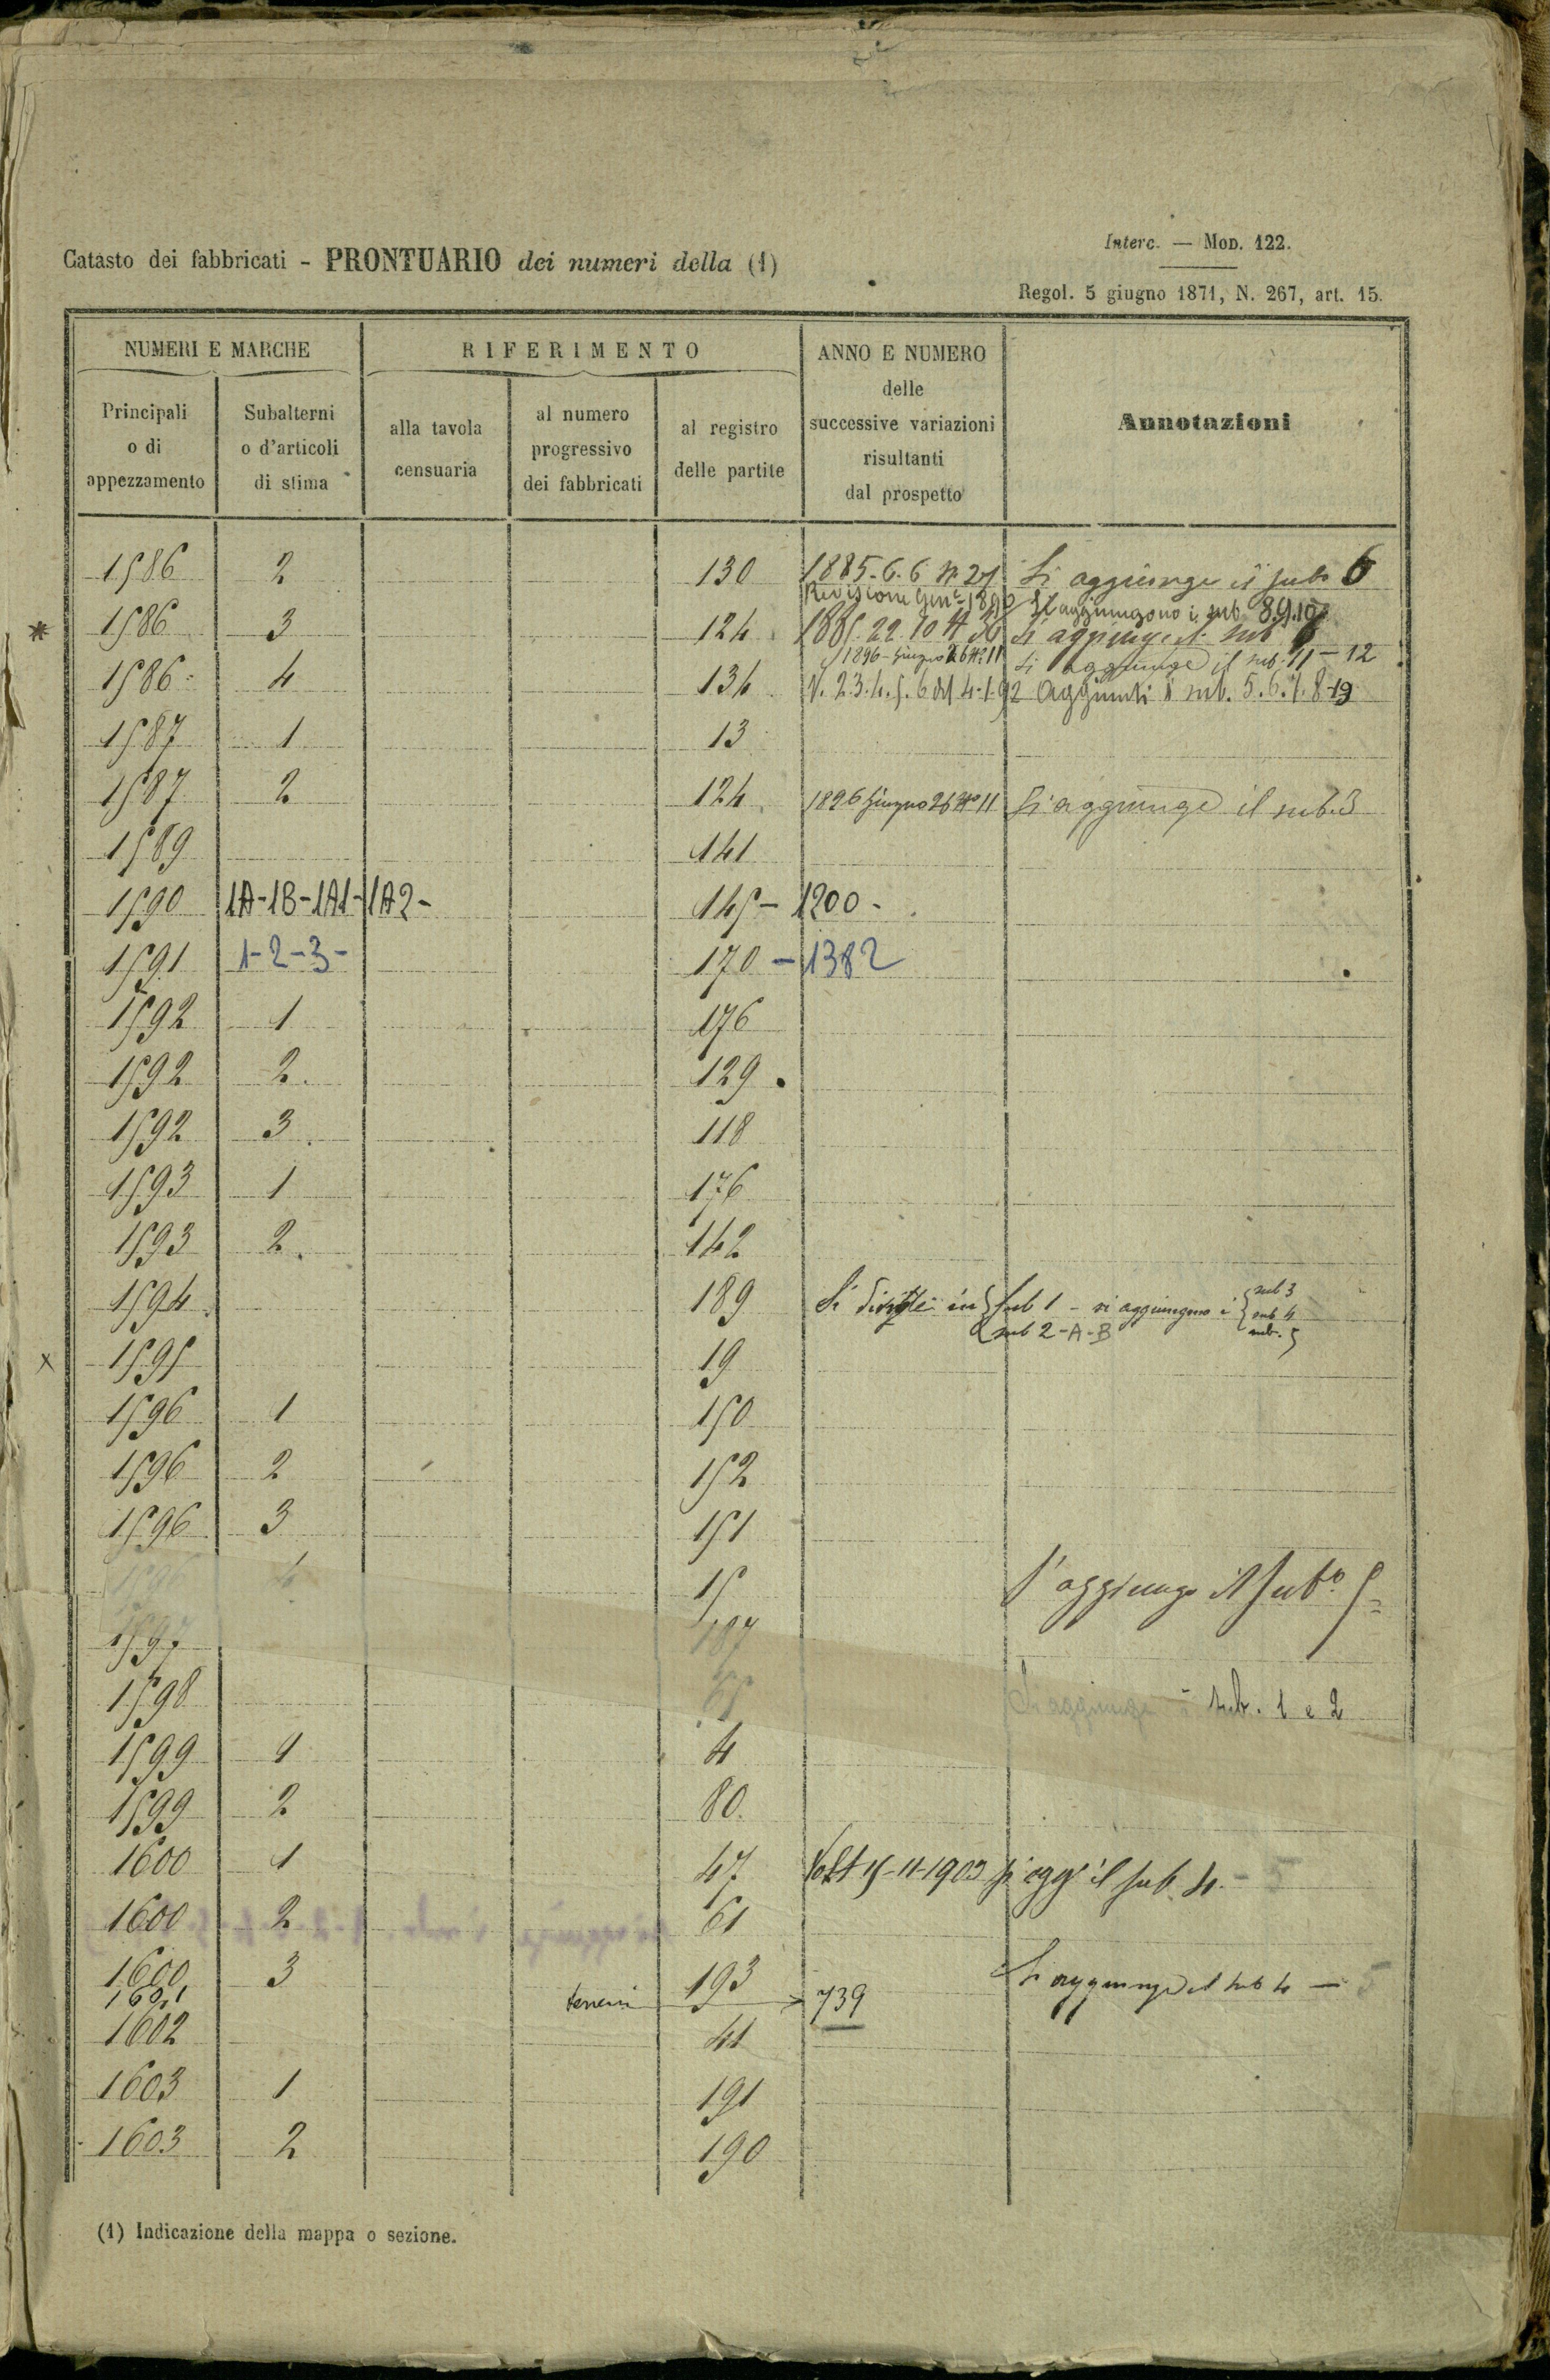 Interc. — MOD. 122.
Catasto dei fabbricati - PRONTUARIO dei numeri della (1)
Regol. 5 giugno 1871, N. 267, art. 15.
NUMERI E MARCHE
RIFERIMENTO
ANNO E NUMERO
delle
successive variazioni
risultanti
dal prospetto
Annotazioni
Principali
o di
appezzamento
Subalterni
o d'articoli
di stima
alla tavola
censuaria
al numero
progressivo
dei fabbricati
al registro
delle partite
1586 2 130 1885-6-6 Si aggiunge il sub 6
Revisione Gen.e 1890 Si aggiungono i sub 8.9.10
1586 3 124 Si aggiunge il sub
1896 giugno 26 N° 11 Si aggiunge il sub. 11 - 12
1586 4 134 N. 2.3.4.5.6 del 4-1-92 Aggiunti i sub. 5.6.7.8-
1587 1 13
1587 2 124 1896 giugno 26 N° 11 Si aggiunge il sub. 3
1589 141
1590 1A-1B-1A1-1A2- 145 - 1200 -
1591 1-2-3- 170 - 1382
1592 1 176
1592 2. 129
1592 3. 118
1593 1 176
1593 2. 142
1594 189 Si divide in { Sub 1 - si aggiungono i { sub 3
sub 4
{ sub 2-A-B sub. 5
x 1595 19
1596 1 150
1596 2 152
1596 3 151
1596 4 15 S'aggiunge il Sub.o 5=
1597 187
1598 Si aggiunge i sub. 1 e 2
1599 1 4
1599 2 80.
1600 1 47 15-11-1903 si agg' il sub. 4. - 5
1600 2 61
1600 3 193 Si aggiunge il sub 4 - 5
1601 terreni 739
1602 41
1603 1 191
1603 2 190
(1) Indicazione della mappa o sezione.